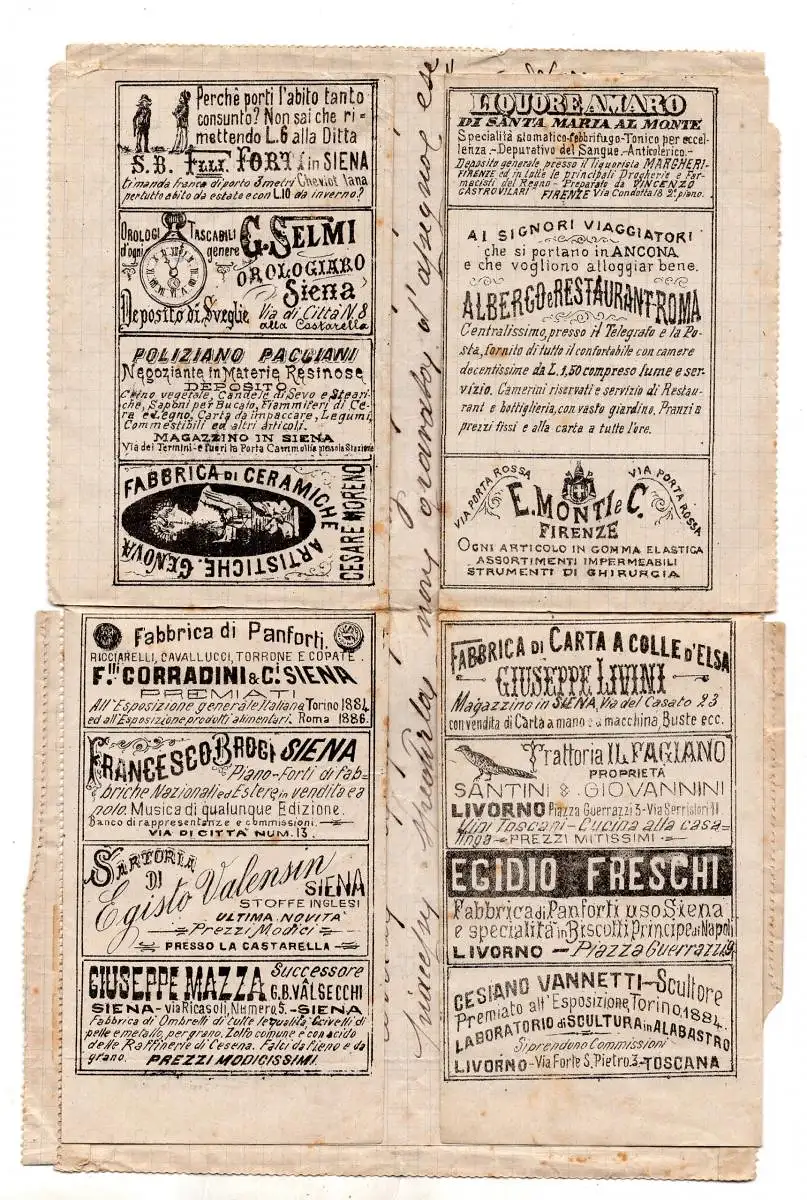 Perchè porti l'abito tanto
consunto? Non sai che ri-
mettendo L.6 alla Ditta
S.B. F.LLI FORTI in SIENA
ti manda franca di porto 3 metri Cheviot lana
per tutto abito da estate e con L.10 da inverno?
OROLOGI TASCABILI
d'ogni genere
G. SELMI
OROLOGIARO
Siena
Deposito di Sveglie
Via di Città N. 8
alla Costarella
POLIZIANO PACCIANI
Negoziante in Materie Resinose
DEPOSITO
Crino vegetale, Candele di Sevo e Steari-
che, Saponi per Bucato, Fiammiferi di Ce-
ra e Legno, Carta da impaccare, Legumi,
Commestibili ed altri articoli.
MAGAZZINO IN SIENA
Via dei Termini - e fuori la Porta Cammollia presso la Stazione
FABBRICA DI CERAMICHE
ARTISTICHE, GENOVA
CESARE MORENO
Fabbrica di Panforti.
RICCIARELLI, CAVALLUCCI, TORRONE E COPATE.
F.lli CORRADINI & C.i SIENA
PREMIATI
All'Esposizione generale Italiana, Torino 1884
ed all'Esposizione prodotti alimentari. Roma 1886.
FRANCESCO BROGI SIENA
Piano-Forti di fab-
briche Nazionali ed Estere in vendita e a
nolo. Musica di qualunque Edizione.
Banco di rappresentanze e commissioni.
VIA DI CITTÀ NUM. 13.
SARTORIA
DI
Egisto Valensin
SIENA
STOFFE INGLESI
ULTIMA NOVITÀ
Prezzi Modici
PRESSO LA CASTARELLA
GIUSEPPE MAZZA Successore
G.B. VALSECCHI
SIENA - via Ricasoli, Numero 5. - SIENA
Fabbrica di Ombrelli di tutte le qualità, Crivelli di
pelle e metallo, per grano. Zolfo comune e con acido
delle Raffinerie di Cesena. Falci da fieno e da
grano. PREZZI MODICISSIMI.
LIQUORE AMARO
DI SANTA MARIA AL MONTE
Specialità stomatico-febbrifugo-Tonico per eccel-
lenza - Depurativo del Sangue - Anticolerico. -
Deposito generale presso il liquorista MARGHERI-
FIRENZE ed in tutte le principali Drogherie e Far-
macisti del Regno - Preparato da VINCENZO
CASTROVILARI FIRENZE Via Condotta 18 2° piano.
AI SIGNORI VIAGGIATORI
che si portano in ANCONA
e che vogliono alloggiar bene.
ALBERGO e RESTAURANT-ROMA
Centralissimo, presso il Telegrafo e la Po-
sta, fornito di tutto il confortabile con camere
decentissime da L. 1,50 compreso lume e ser-
vizio. Camerini riservati e servizio di Restau-
rant e bottiglieria, con vasto giardino. Pranzi a
prezzi fissi e alla carta a tutte l'ore.
VIA PORTA ROSSA
VIA PORTA ROSSA
E. MONTI e C.
FIRENZE
OGNI ARTICOLO IN GOMMA ELASTICA
ASSORTIMENTI IMPERMEABILI
STRUMENTI DI CHIRURGIA
FABBRICA DI CARTA A COLLE D'ELSA
GIUSEPPE LIVINI
Magazzino in SIENA, Via del Casato 23
con vendita di Carta a mano e a macchina, Buste ecc.
Trattoria IL FAGIANO
PROPRIETÀ
SANTINI & GIOVANNINI
LIVORNO Piazza Guerrazzi 3 - Via Serristori 11
Vini Toscani - Cucina alla casa-
linga - PREZZI MITISSIMI
EGIDIO FRESCHI
Fabbrica di Panforti uso Siena,
e specialità in Biscotti Principe di Napoli
LIVORNO - Piazza Guerrazzi 9
CESIANO VANNETTI - Scultore
Premiato all'Esposizione, Torino, 1884.
LABORATORIO di SCULTURA in ALABASTRO
Si prendono Commissioni
LIVORNO - Via Forte S. Pietro, 3 - TOSCANA